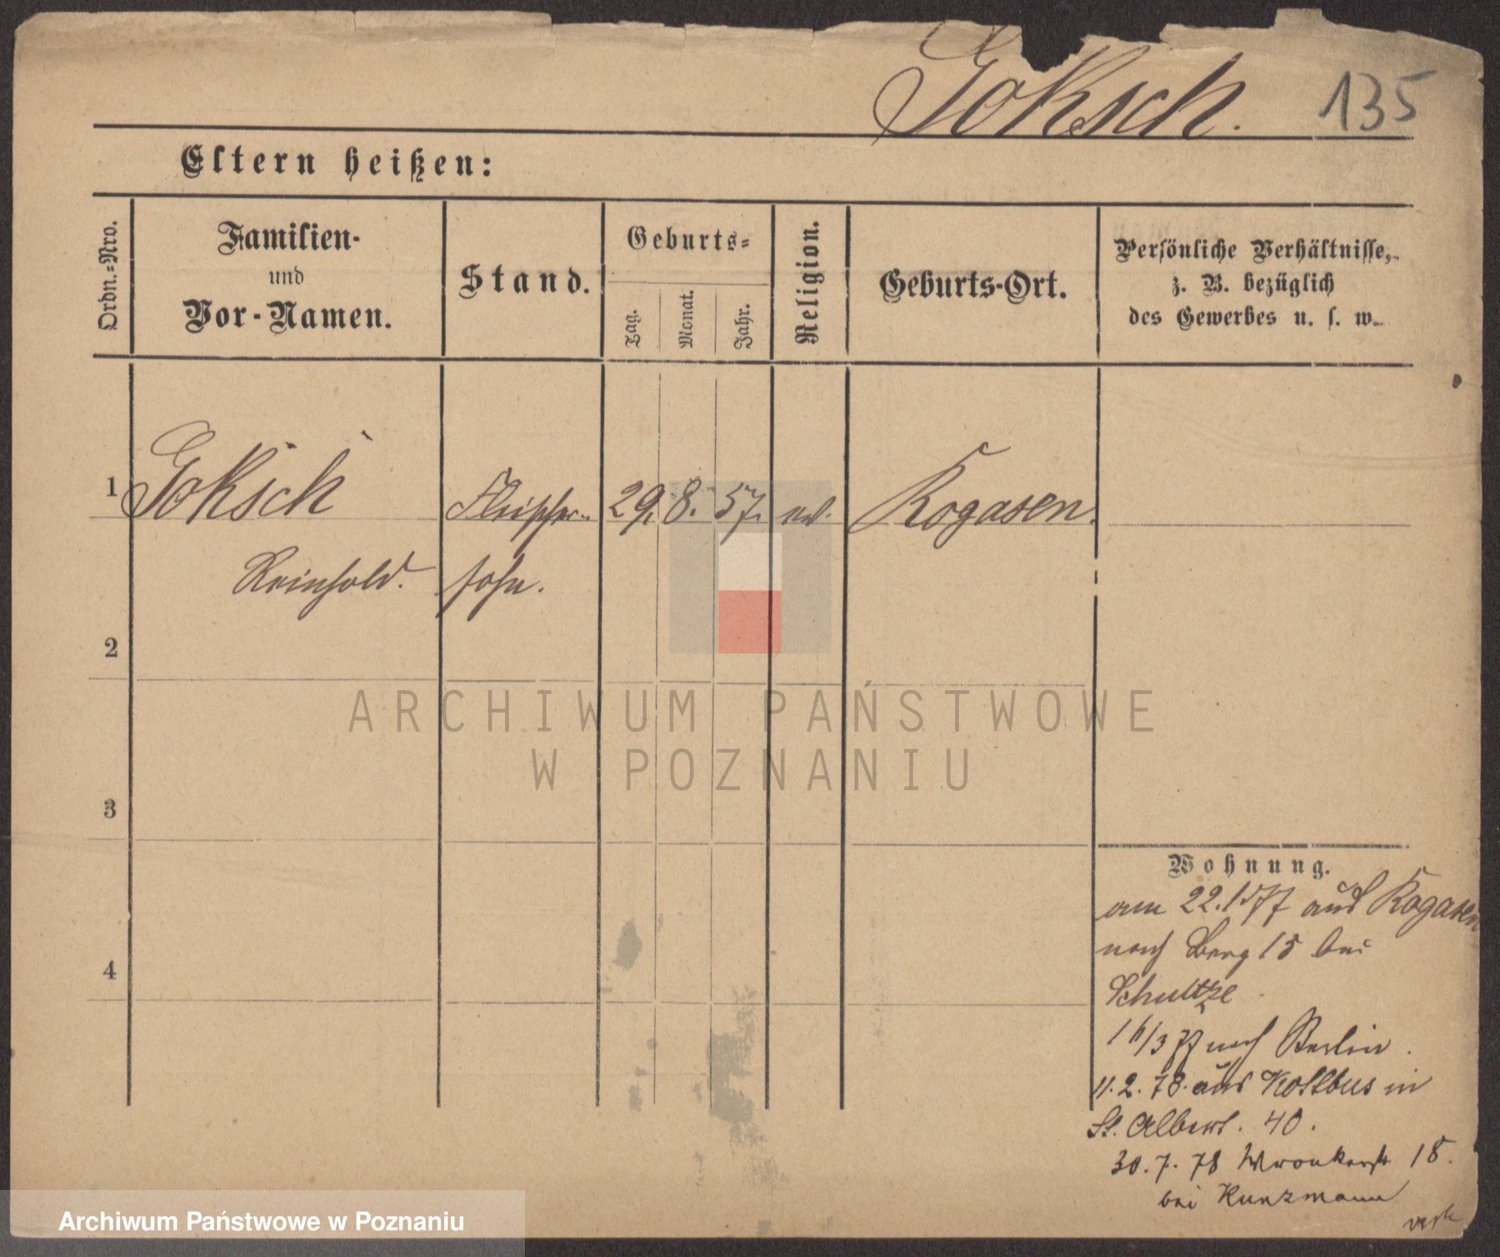 Joksch. 135
Eltern heißen:
Ordn.-Nro.
Familien-
und
Vor-Namen.
Stand.
Geburts-
Tag.
Monat.
Jahr.
Religion.
Geburts-Ort.
Persönliche Verhältnisse,
z. B. bezüglich
des Gewerbes u. s. w.
1 Joksch Fleischer- 29. 8. 57. ev. Rogasen.
Reinhold. sohn.
2
3
4
Wohnung.
am 22.1 77 aus Rogasen
nach Berg 15 bei
Schultze
16/3 77 nach Berlin.
11.2.78. aus Kottbus in
St. Albert. 40.
30.7.78 Wronkerstr 18.
bei Kunzmann
ARCHIWUM PAŃSTWOWE
W POZNANIU
Archiwum Państwowe w Poznaniu